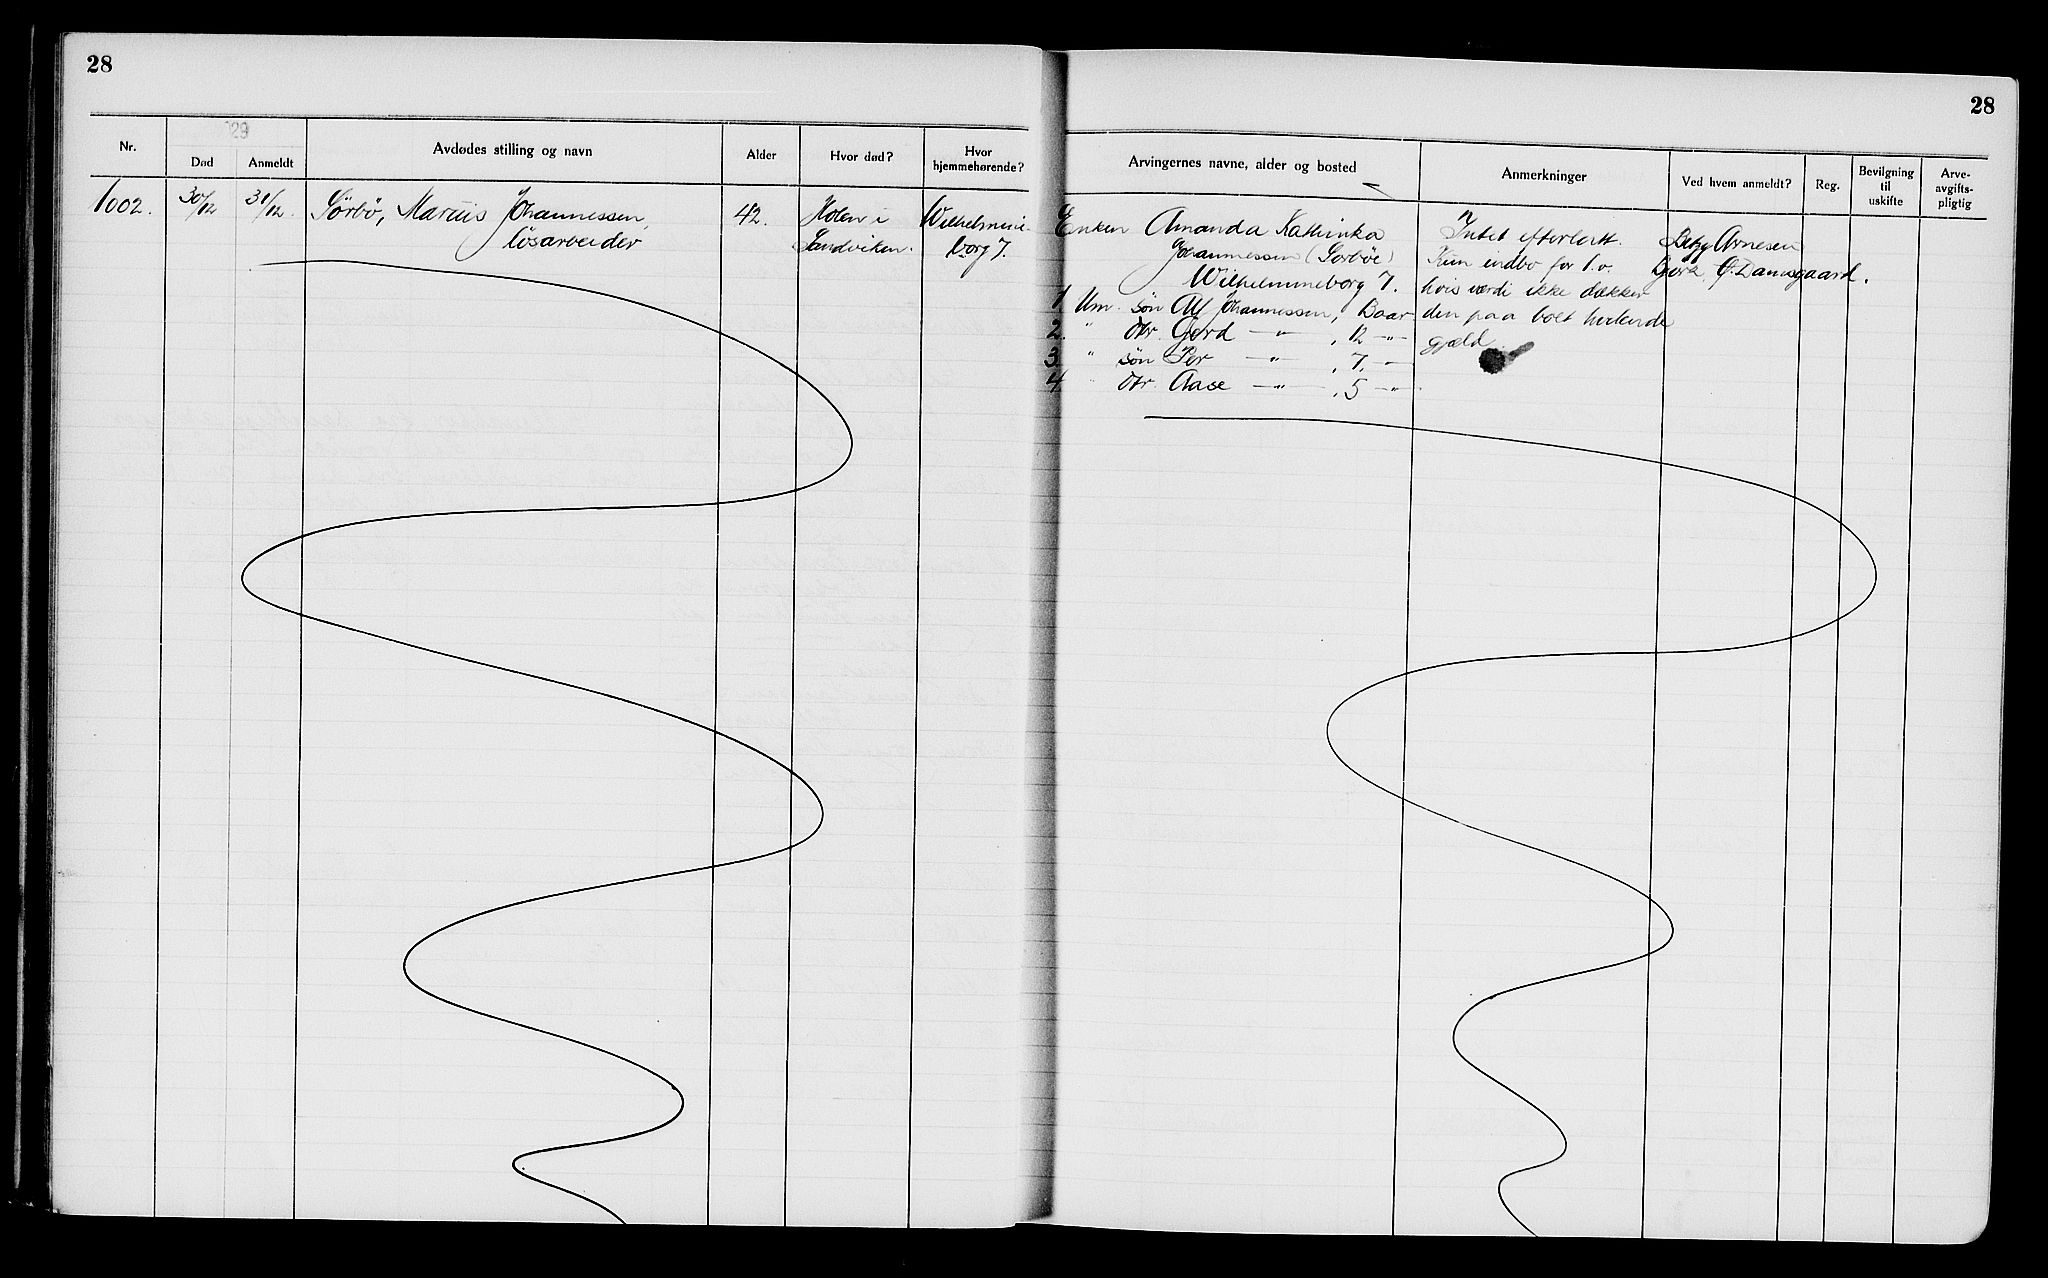 28
28
'29
Nr.
Død
Anmeldt
Avdødes stilling og navn
Alder
Hvor død?
Hvor hjemmehørende?
Arvingernes navne, alder og bosted
Anmerkninger
Ved hvem anmeldt?
Reg.
Bevilgning til uskifte
Arve-avgifts-pligtig
1002. 30/12 31/12. Sørbø, Marius Johannessen, 42. Holen i Wilhelmine-
løsarbeider Sandviken. borg 7.
Enken Amanda Kathinka
Johannessen (Sørbøe)
Wilhelmineborg 7.
1 Um. søn Alf Johannessen, aar
2. " dtr. Gerd —"— , 12 —"—
3. " søn Per —"— , 7. —"—
4. " dtr. Aase —"— , 5 —"—
Intet efterlatt.
Kun indbo for l.v.
hvis værdi ikke dækker
den paa boet heftende
gjæld.
Betzy Arnesen
Damsgaard.